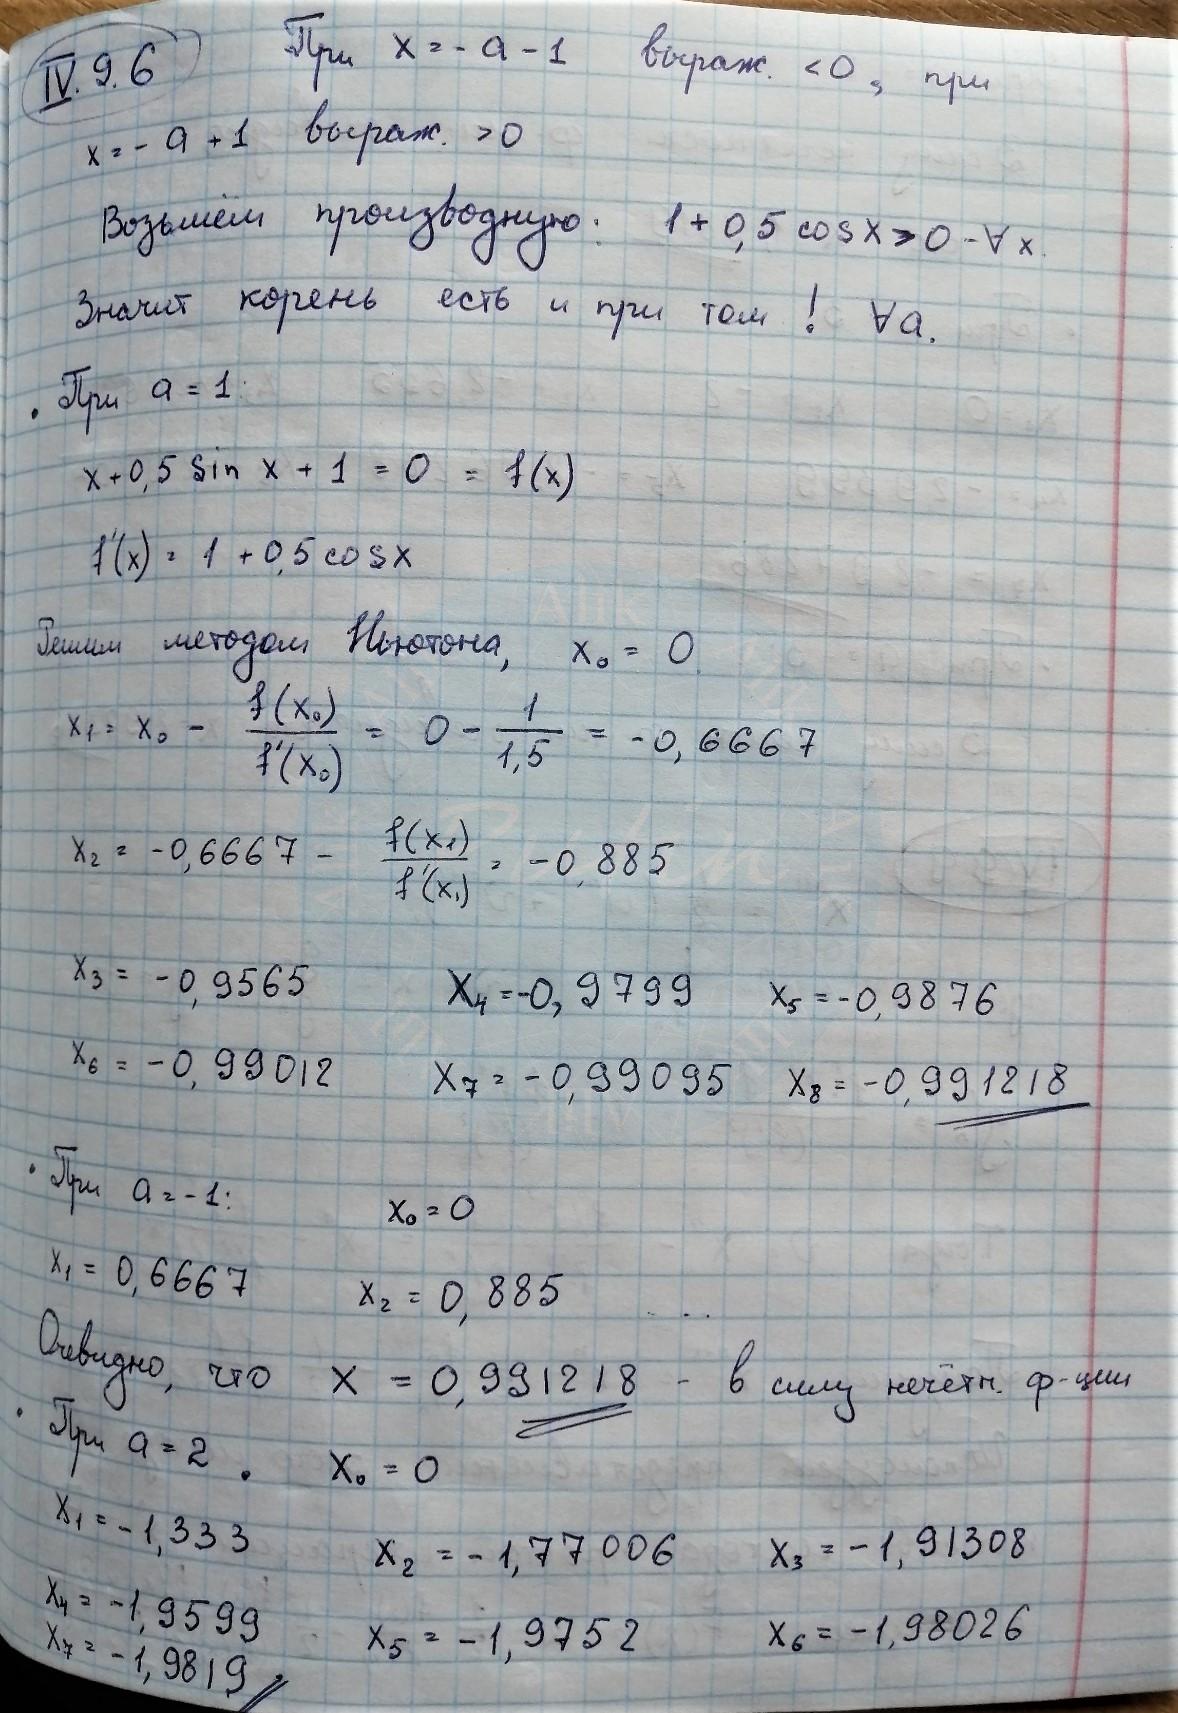 IV.9.6 При x = - a - 1 выраж. < 0, при
x = - a + 1 выраж. > 0
Возьмём производную: 1 + 0,5 cos x > 0 - ∀ x.
Значит корень есть и при том ! ∀a.
• При a = 1:
x + 0,5 sin x + 1 = 0 = f(x)
f'(x) = 1 + 0,5 cos x
Решим методом Ньютона, x₀ = 0
x₁ = x₀ - f(x₀)/f'(x₀) = 0 - 1/1,5 = -0,6667
x₂ = -0,6667 - f(x₁)/f'(x₁) = -0,885
x₃ = -0,9565 x₄ = -0,9799 x₅ = -0,9876
x₆ = -0,99012 x₇ = -0,99095 x₈ = -0,991218
• При a = -1: x₀ = 0
x₁ = 0,6667 x₂ = 0,885 ...
Очевидно, что x = 0,991218 - в силу нечётн. ф-ции
• При a = 2. x₀ = 0
x₁ = -1,333 x₂ = -1,77006 x₃ = -1,91308
x₄ = -1,9599 x₅ = -1,9752 x₆ = -1,98026
x₇ = -1,9819